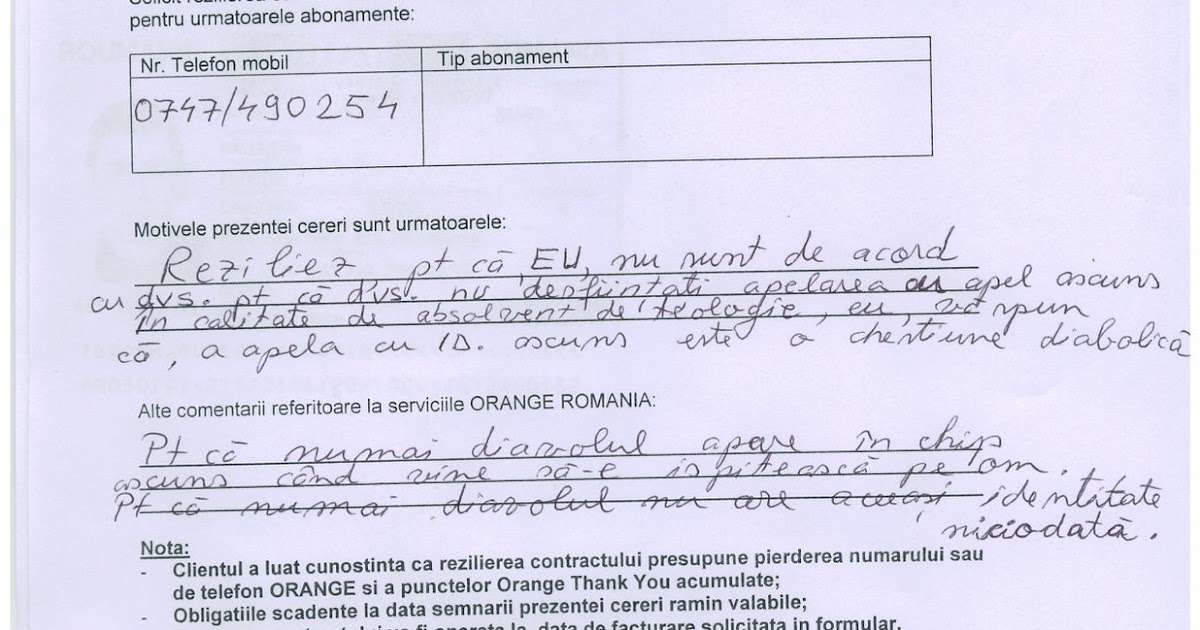 pentru urmatoarele abonamente:
Nr. Telefon mobil Tip abonament
0747/490254
Motivele prezentei cereri sunt urmatoarele:
Reziliez pt că, EU, nu sunt de acord
cu dvs. pt că dvs. nu desființati apelarea cu apel ascuns
în calitate de absolvent de teologie, eu, vă spun
că, a apela cu ID. ascuns este o chestiune diabolică
Alte comentarii referitoare la serviciile ORANGE ROMANIA:
Pt că numai diavolul apare în chip
ascuns când vine să-l ispitească pe om.
Pt că numai diavolul nu are aceeași identitate
niciodată.
Nota:
- Clientul a luat cunostinta ca rezilierea contractului presupune pierderea numarului sau
de telefon ORANGE si a punctelor Orange Thank You acumulate;
- Obligatiile scadente la data semnarii prezentei cereri ramin valabile;
data de facturare solicitata in formular.